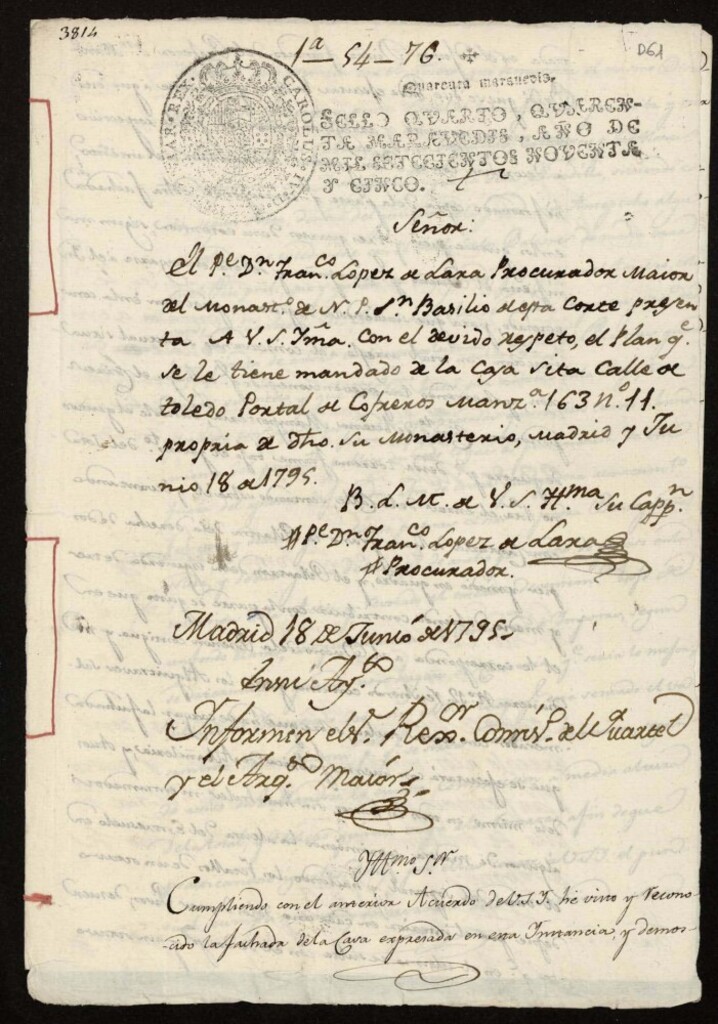 3814
D61
1ª - 54 - 76.
CAROLUS IV D. G. HISPANIAR. REX
Quarenta maravedis.
SELLO QVARTO, QVAREN-
TA MARAVEDIS, AÑO DE
MIL SETECIENTOS NOVENTA
Y CINCO.
Señor:
El Pe. Dn. Franco. Lopez de Lara Procurador Maior
del Monasto. de N. P. Sn. Basilio de esta Corte presen
ta A V. S. Yma. con el devido respeto, el Plan qe.
se le tiene mandado de la Casa sita Calle de
toledo Portal de Cofreros Manza. 163 No. 11.
propria de dho. su Monasterio, Madrid y Ju
nio 18 de 1795.
B. L. M. de V. S. Yllma su Cappn.
Pe. Dn. Franco. Lopez de Lara
Procurador.
Madrid 18 de Junio de 1795
En su Ayto.
Informen el Sr. Rexor. Comiso. del Quartel
y el Arqto. Maior
Yllmo. Sr.
Cumpliendo con el anterior Acuerdo de V.S.Y. he visto y recono-
cido la fachada de la Casa expresada en esta Instancia, y demos-